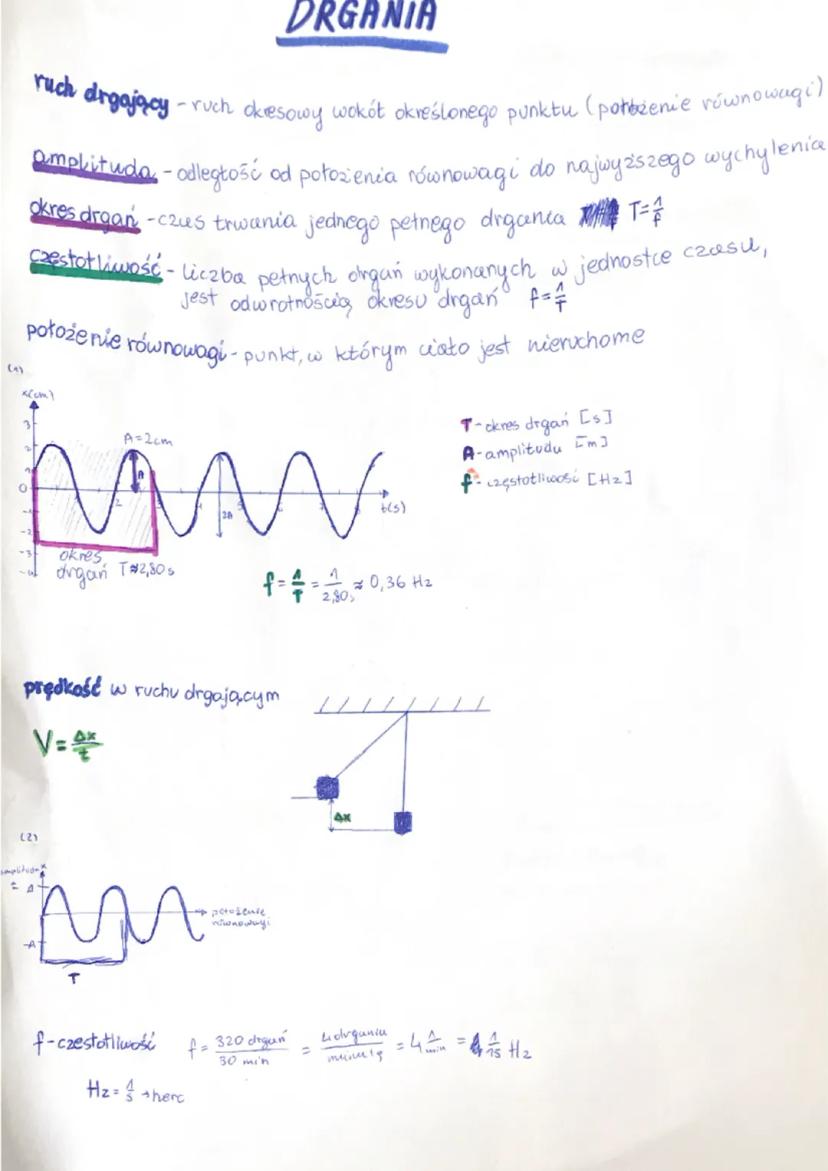 DRGANIA
ruch drgający - ruch okresowy wokół określonego punktu (położenie równowagi)
amplituda - odległość od położenia równowagi do najwyższego wychylenia
okres drgań - czas trwania jednego pełnego drgania T=1/f
częstotliwość - liczba pełnych drgań wykonanych w jednostce czasu,
jest odwrotnością okresu drgań f=1/T
położenie równowagi - punkt, w którym ciało jest nieruchome
(1)
x(cm)
3
2
1
0
-1
-2
-3
-4
A=2cm
A
2A
t(s)
okres
drgań T≈2,80s
T - okres drgań [s]
A - amplituda [m]
f - częstotliwość [Hz]
f = 1/T = 1/2,80s ≈ 0,36 Hz
prędkość w ruchu drgającym
V = Δx/t
Δx
(2)
amplituda x
= A
-A
położenie
równowagi
T
f - częstotliwość f = 320 drgań/30 min = 4 drgania/minutę = 4 1/min = 1/15 Hz
Hz = 1/s → herc